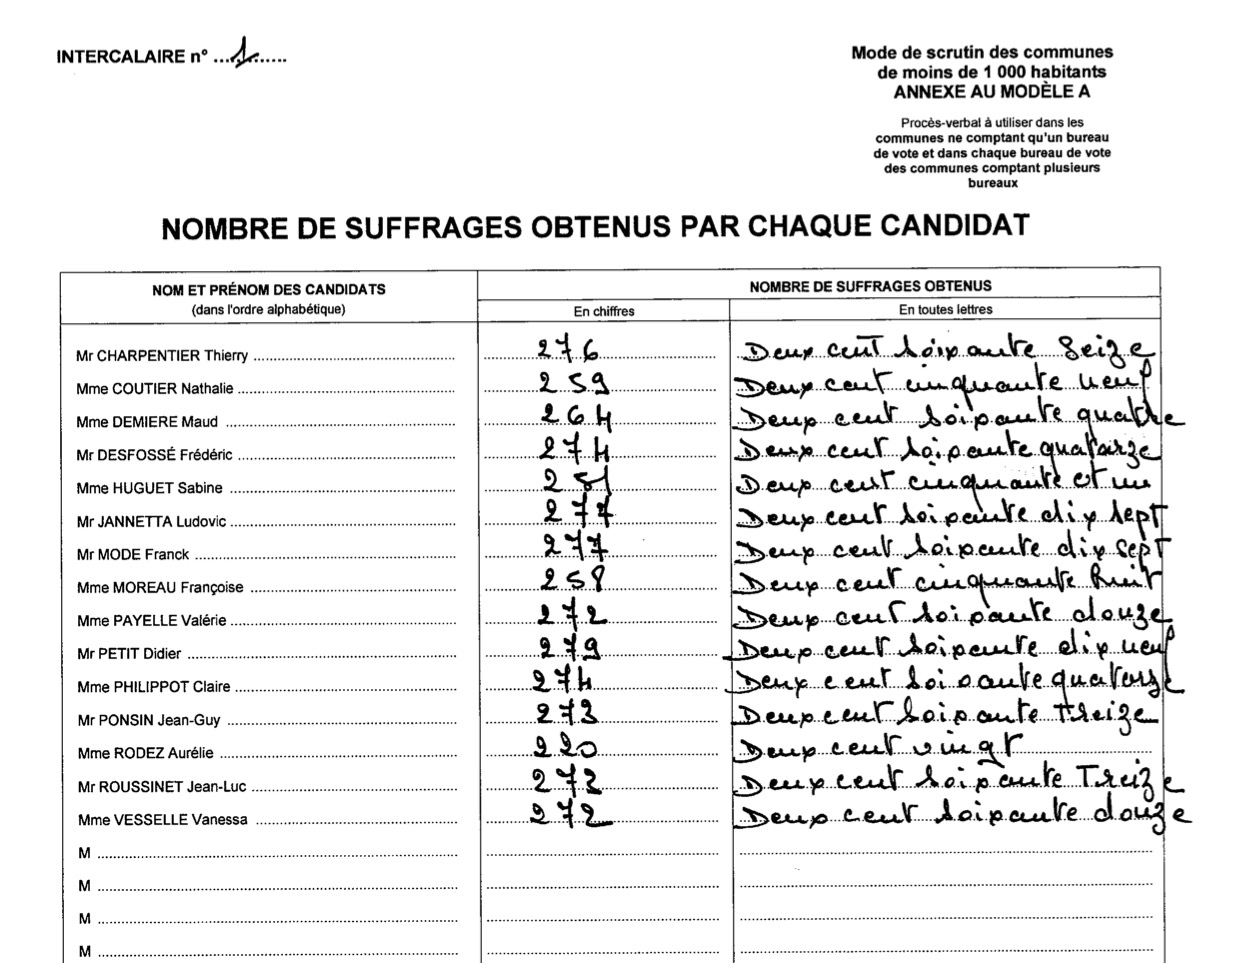 INTERCALAIRE n° ...1.......
Mode de scrutin des communes
de moins de 1 000 habitants
ANNEXE AU MODÈLE A
Procès-verbal à utiliser dans les
communes ne comptant qu'un bureau
de vote et dans chaque bureau de vote
des communes comptant plusieurs
bureaux
NOMBRE DE SUFFRAGES OBTENUS PAR CHAQUE CANDIDAT
NOM ET PRÉNOM DES CANDIDATS
(dans l'ordre alphabétique)
NOMBRE DE SUFFRAGES OBTENUS
En chiffres
En toutes lettres
Mr CHARPENTIER Thierry 276 Deux cent soixante Seize
Mme COUTIER Nathalie 259 Deux cent cinquante neuf
Mme DEMIERE Maud 264 Deux cent soixante quatre
Mr DESFOSSÉ Frédéric 274 Deux cent soixante quatorze
Mme HUGUET Sabine 251 Deux cent cinquante et un
Mr JANNETTA Ludovic 277 Deux cent soixante dix sept
Mr MODE Franck 277 Deux cent soixante dix sept
Mme MOREAU Françoise 258 Deux cent cinquante huit
Mme PAYELLE Valérie 272 Deux cent soixante douze
Mr PETIT Didier 279 Deux cent soixante dix neuf
Mme PHILIPPOT Claire 274 Deux cent soixante quatorze
Mr PONSIN Jean-Guy 273 Deux cent soixante Treize
Mme RODEZ Aurélie 220 Deux cent vingt
Mr ROUSSINET Jean-Luc 273 Deux cent soixante Treize
Mme VESSELLE Vanessa 272 Deux cent soixante douze
M
M
M
M